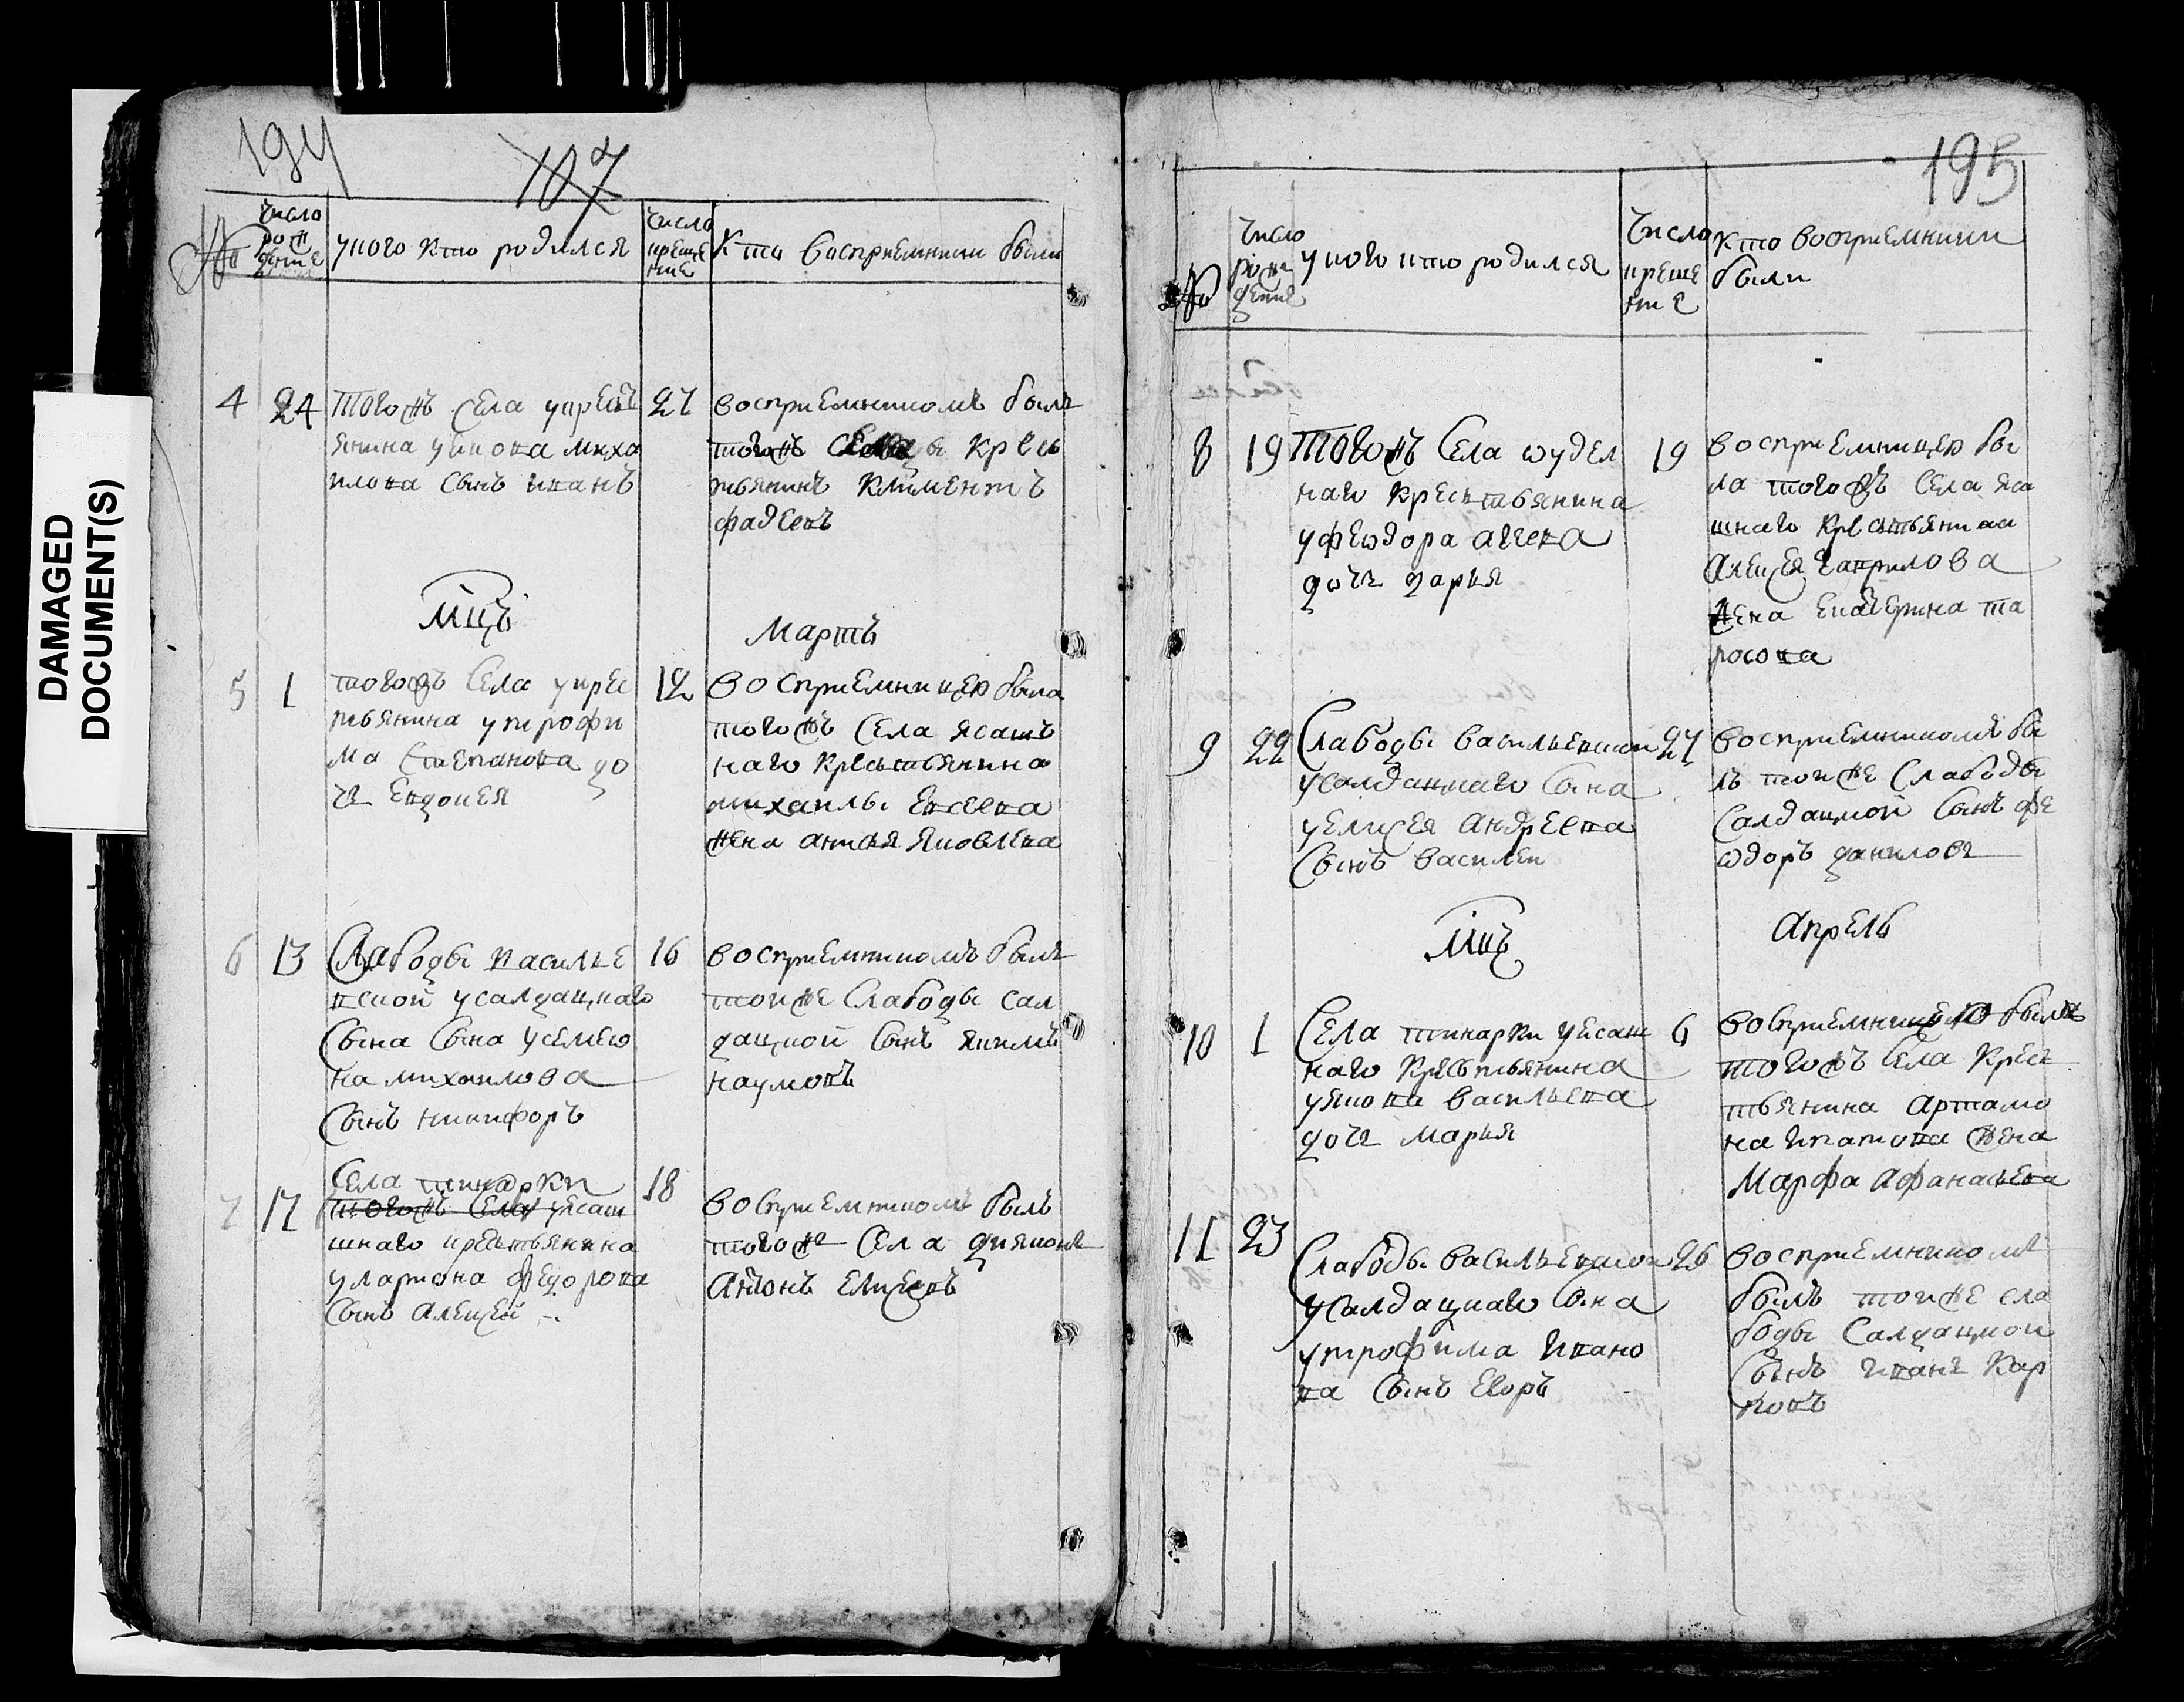 DAMAGED
DOCUMENT(S)
194
107
№
число рождение
у ково кто родился
число крещение
кто восприемники были
4
24
тогожъ села укресть
янина уякова миха
илова сынъ иванъ
27
восприемникомъ былъ
тогожъ села кресь
тьянинъ климентъ
фадеевъ
мцъ
мартъ
5
1
тогожъ села укрес
тьянина утрофи
ма степанова до
чь евдокея
12
восприемницею была
тогожъ села ясашъ
наго кресьтьянина
михаилы евсеева
жена яковлева
6
13
слабоды василье
вской усалдацкаго
сына сына усемео
на михаилова
сынъ никифоръ
16
восприемникомъ былъ
тойже слабоды сал
дацкой сынъ якимъ
наумовъ
7
17
села тинарки
тогожъ села уясаш
шнаго крестьянина
улариона федорова
сынъ алексей
18
восприемникомъ былъ
тогоже села дияконъ
антонъ елисеевъ
195
№
число рождение
у ково кто родился
число крещение
кто восприемники
были
8
19
тогожъ села ѡудел
наго кресьтьянина
уфеѡдора агеева
дочь дарья
19
восприемницею бы
ла тогожъ села яса
шнаго крестьянина
алексея гаврилова
жена екатерина та
расова
9
22
слабоды васильевской
усалдацкаго сына
уелисея андреева
сынъ василеи
27
восприемникомъ бы
лъ тойже слабоды
салдацкой сынъ фе
ѡдоръ даниловъ
мцъ
апрель
10
1
села тинарки уясаш
наго кресьтьянина
уякова васильева
дочь марья
6
восприемницею была
тогожъ села крест
тьянина артамо
на ипатова жена
марфа афанасьева
11
23
слабоды васильевской
усалдацкаго сына
утрофима ивано
ва сынъ егоръ
26
восприемникомъ
былъ тойже сла
боды салдацкой
сынъ иванъ кар
повъ